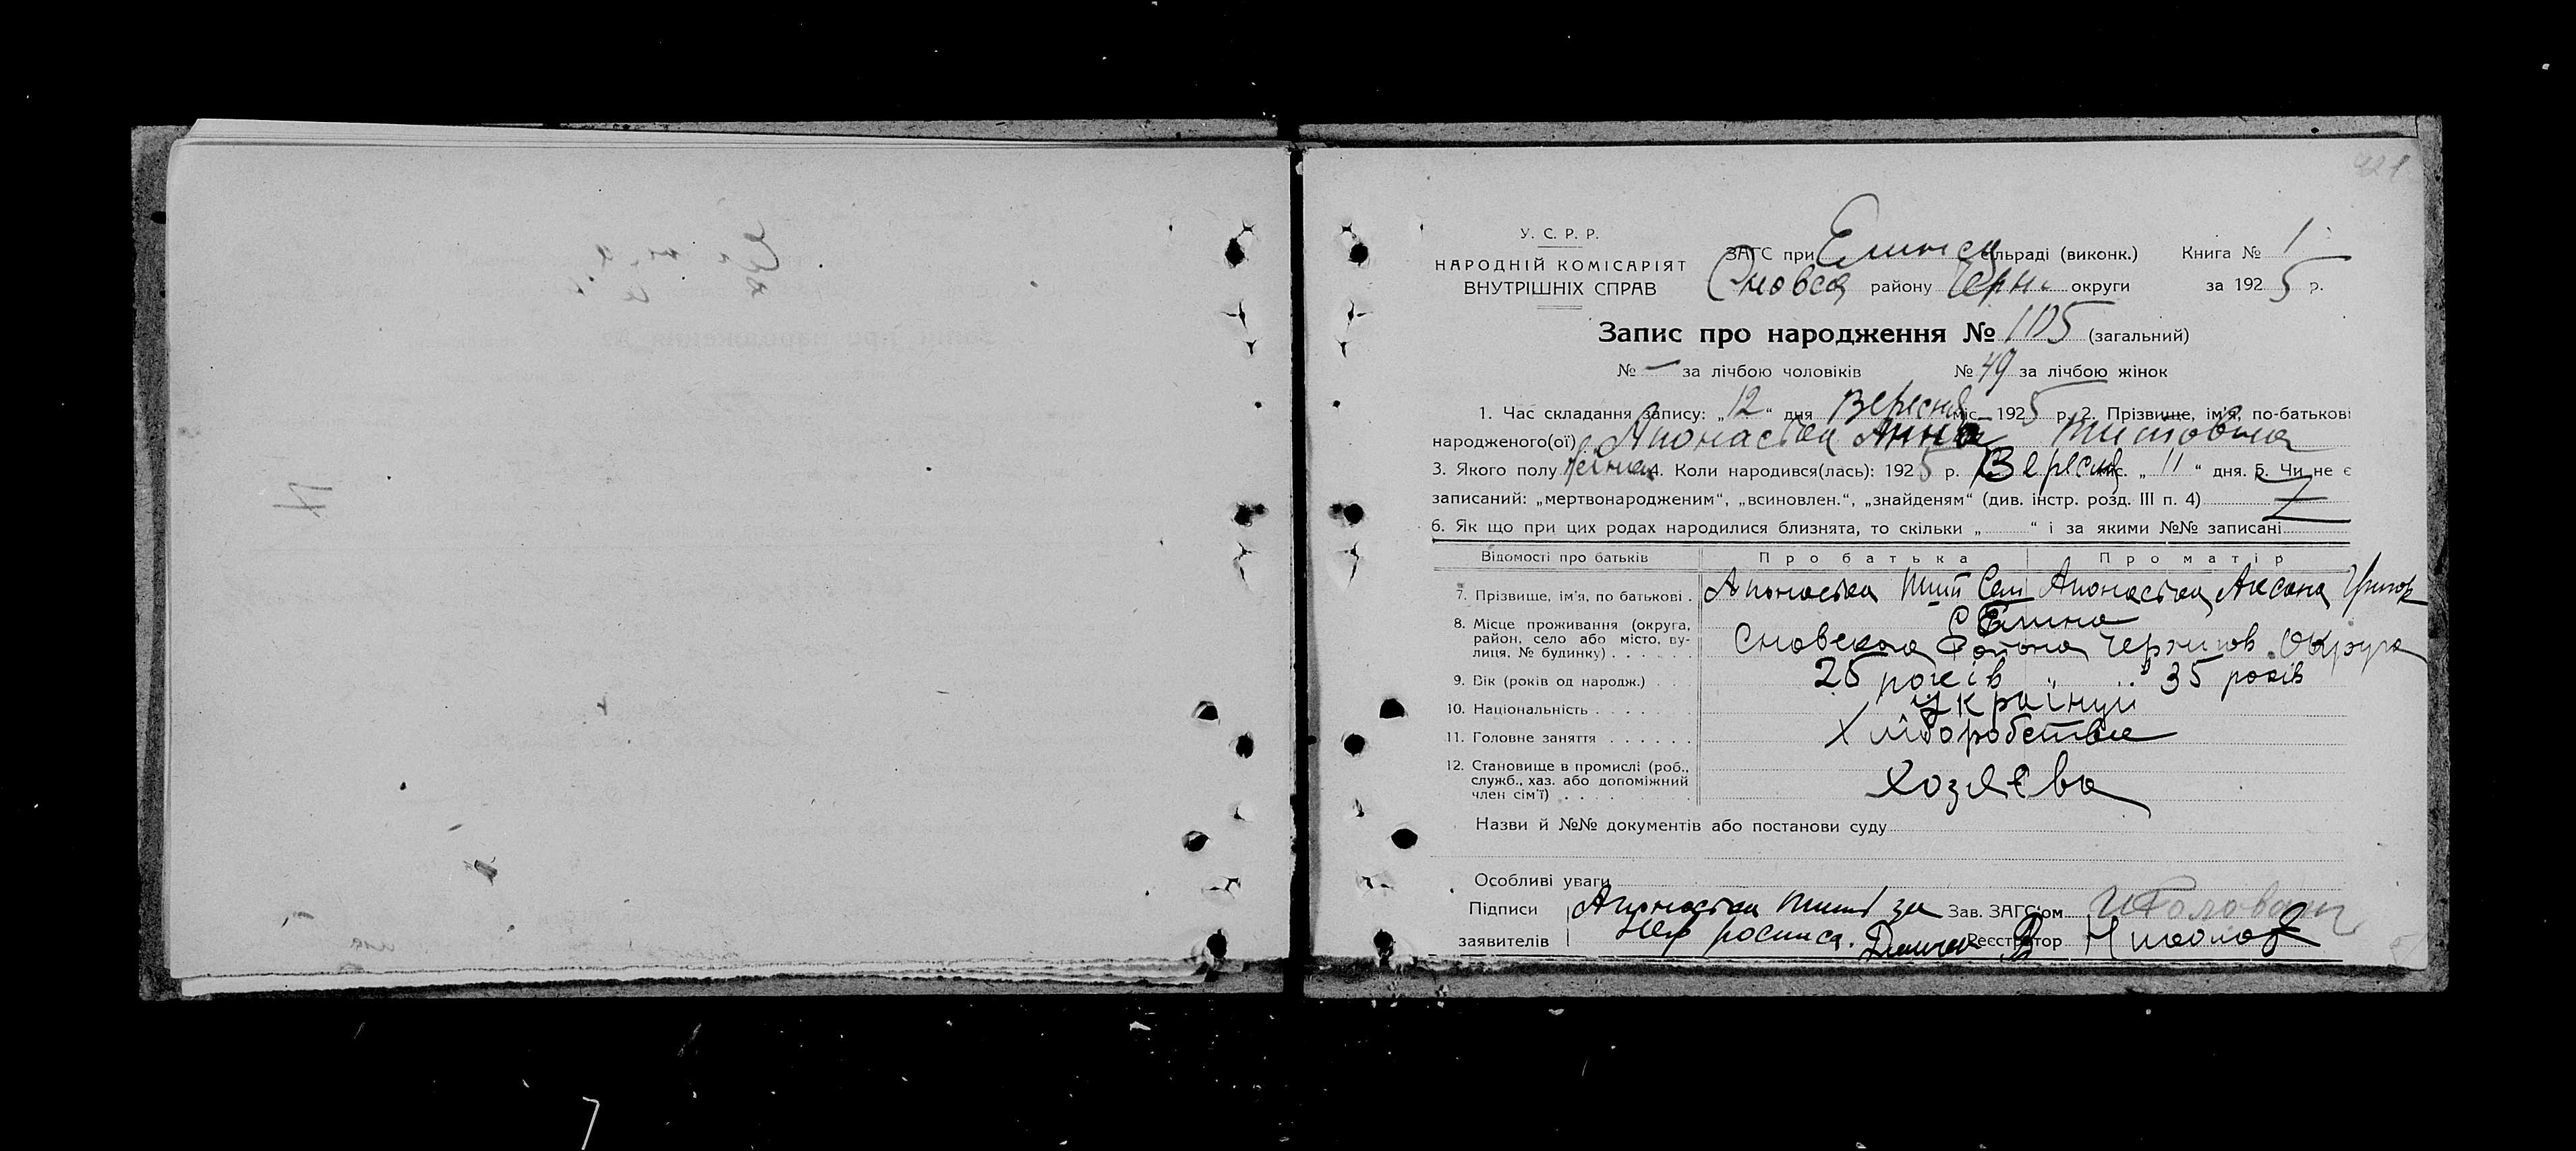 У. С. Р. Р.
НАРОДНІЙ КОМІСАРІЯТ
ВНУТРІШНІХ СПРАВ
ЗАГС при Елинск сільраді (виконк.) Книга № 1
Сновск району Черн. округи за 1925 р.
Запис про народження № 105 (загальний)
№ — за лічбою чоловіків № 49 за лічбою жінок
1. Час складання запису: „12“ дня Вересня міс. 1925 р. 2. Прізвище, ім'я, по-батькові
народженого(ої) Анна Титовна
3. Якого полу 4. Коли народився(лась): 1925 р. Вересня міс. „11“ дня. 5. Чи не є
записаний: „мертвонародженим“, „всиновлен.“, „знайденям“ (див. інстр. розд. III п. 4)
6. Як що при цих родах народилися близнята, то скільки „ “ і за якими №№ записані
Відомості про батьків Про батька Про матір
7. Прізвище, ім'я, по батькові . Тит Сем Аксана Григор
8. Місце проживання (округа, район, село або місто, вулиця, № будинку) . . . . . . с Елино
Сновского района Чернигов. Округа
9. Вік (років од народж.) . . 25 років " " 35 років
10. Національність . . . . . . українці
11. Головне заняття . . . . . . Хліборобство
12. Становище в промислі (роб., служб., хаз. або допоміжний член сім'ї) . . . . хозяєва
Назви й №№ документів або постанови суду
Особливі уваги
Підписи Тит за Зав. ЗАГС'ом
заявителів росписа. Реєстратор